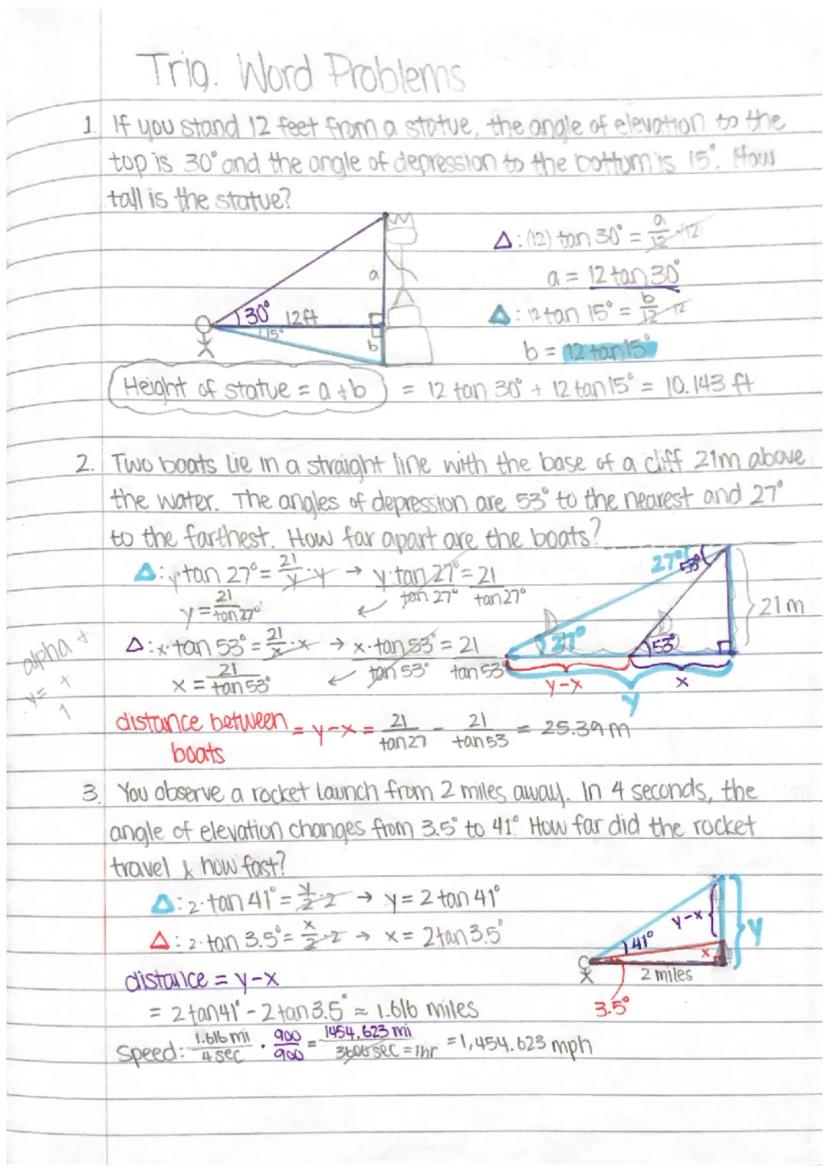 Trig. Word Problems
1. If you stand 12 feet from a statue, the angle of elevation to the
top is 30° and the angle of depression to the bottom is 15°. How
tall is the statue?
Δ: (12) tan 30° = a/12 · 12
a = 12 tan 30°
Δ: 12 tan 15° = b/12 · 12
b = 12 tan 15°
a
30°
12ft
15°
b
Height of statue = a + b = 12 tan 30° + 12 tan 15° = 10.143 ft
2. Two boats lie in a straight line with the base of a cliff 21m above
the water. The angles of depression are 53° to the nearest and 27°
to the farthest. How far apart are the boats?
Δ: y · tan 27° = 21/y · y → y · tan 27°/tan 27° = 21/tan 27°
y = 21/tan 27° ↙
Δ: x · tan 53° = 21/x · x → x · tan 53°/tan 53° = 21/tan 53°
x = 21/tan 53° ↙
27°
53°
21m
27°
53°
y-x
x
y
alpha +
y = +
1
distance between
boats
= y-x = 21/tan27 - 21/tan53 = 25.39 m
3. You observe a rocket launch from 2 miles away. In 4 seconds, the
angle of elevation changes from 3.5° to 41°. How far did the rocket
travel & how fast?
Δ: 2 · tan 41° = y/2 · 2 → y = 2 tan 41°
Δ: 2 · tan 3.5° = x/2 · 2 → x = 2 tan 3.5°
y-x
y
41°
x
2 miles
3.5°
distance = y-x
= 2 tan 41° - 2 tan 3.5° ≈ 1.616 miles
Speed: 1.616 mi/4 sec · 900/900 = 1454.623 mi/3600 sec = 1hr = 1,454.623 mph